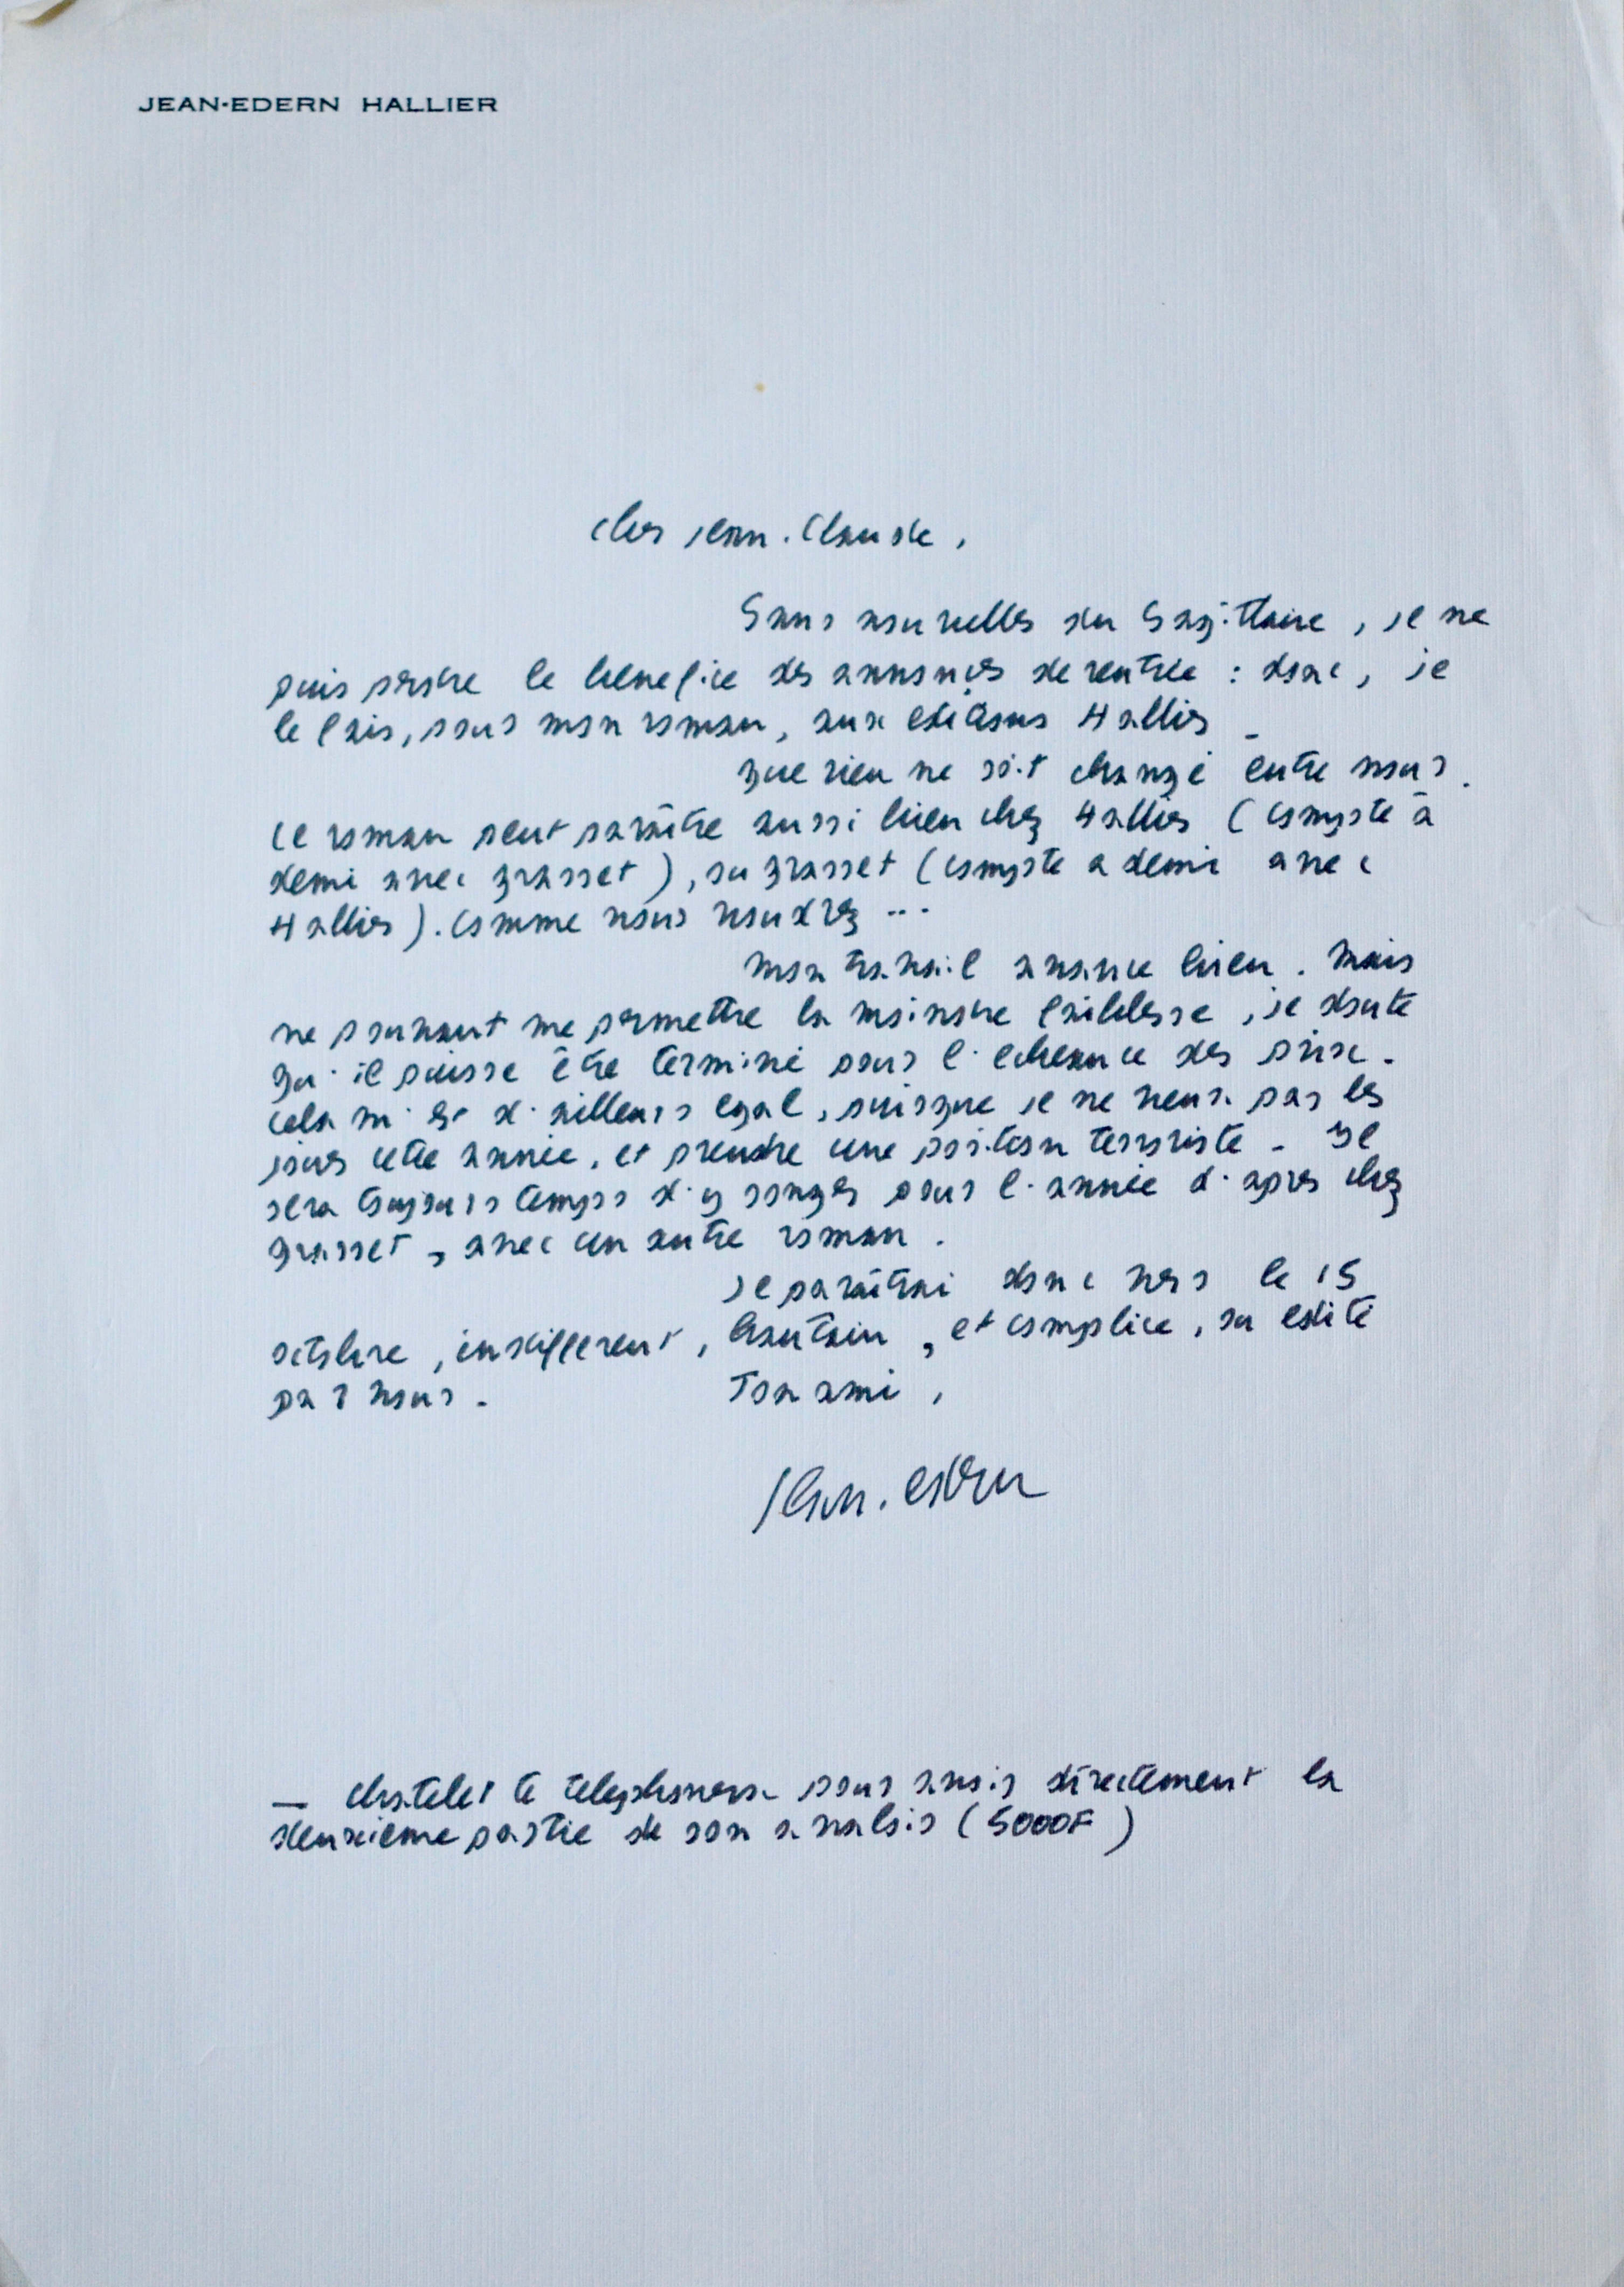 JEAN-EDERN HALLIER
cher jean.Claude,
Sans nouvelles du Sagittaire, je ne
puis perdre le benefice des annonces de rentrée : donc, je
le fais, pour mon roman, aux editions Hallier -
que rien ne soit changé entre nous.
ce roman peut paraître aussi bien chez Hallier (compte à
demi avec grasset), ou grasset (compte a demi avec
Hallier). Comme vous voudrez ...
mon travail avance bien. Mais
ne pouvant me permettre la moindre faiblesse, je doute
qu'il puisse être terminé pour l'echeance des prix.
cela m'est d'ailleurs egal, puisque je ne veux pas les
jouer cette année, et prendre une position terroriste - Il
sera toujours temps d'y songer pour l'année d'apres chez
grasset, avec un autre roman.
je paraîtrai donc vers le 15
octobre, indifferent, hautain, et complice, ou edité
par vous. Ton ami,
Jean.edern
— chatelet te telephonera pour avoir directement la
deuxieme partie de son avaloir (5000F)